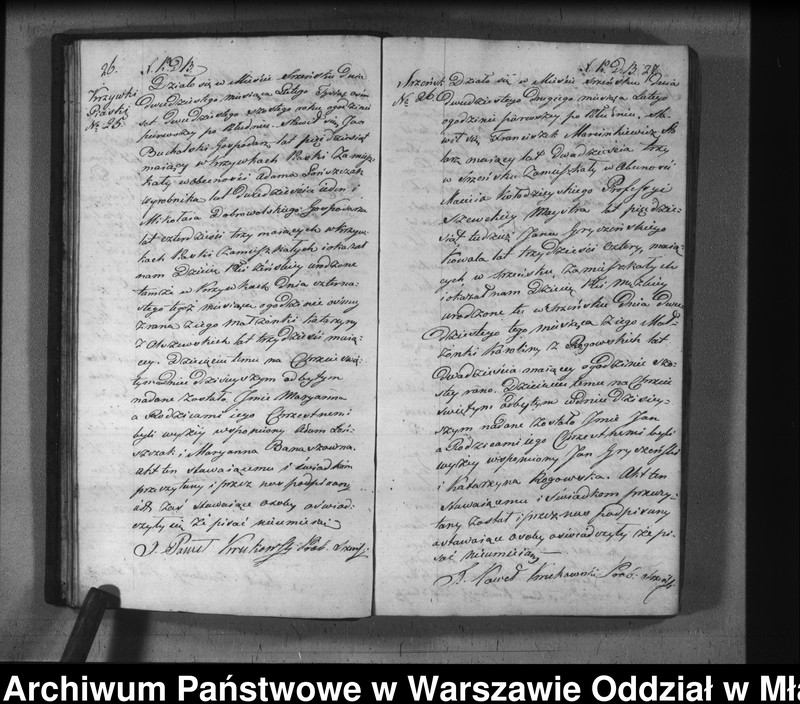 26.
Krzywki
Piaski
№ 25.
Działo się w Mieście Szreńsku Dnia
Dwudziestego miesiąca Lutego Tysiąc ośm
set Dwudziestego szóstego roku ogodzinie
pierwszey po Południu. Stawił się Jan
Bucholski Gospodarz lat pięćdziesiąt
maiący w Krzywkach Piaski Zamiesz
kały wobecności Adama
wyrobnika lat Dwadzieścia ieden i
Mikołaia Dobrowolskiego Gospodarza
lat czterdzieści trzy maiących w Krzyw
kach Piaski Zamieszkałych i okazał
nam Dziecię Płci żeńskiey urodzone
tamże w Krzywkach Dnia czterna
stego tegoż miesiąca ogodzinie ósmey
zrana z iego Małżonki Katarzyny
z Olszewskich lat trzydzieści maią
cey. Dziecięciu temu na Chrzcie świę
tym dnie dzisieyszym odbytym
nadane zostało Imie Maryanna
a Rodzicami iego Chrzestnemi
byli wyżey wspomniony Adam
i Maryanna Banaszowna.
Akt ten stawaiącemu i świadkom
przeczytany i przez nas podpisany
iż zaś stawaiące osoby oświad
czyły iż pisać nieumieią
X. Paweł Krukowski Prob. Szreńs:
27.
Szreńsk
№ 26.
Działo się w Mieście Szreńsku Dnia
Dwudziestego Drugiego miesiąca Lutego
ogodzinie pierwszey po Południu. Sta
wił się Franciszek Marcinkiewicz Sto
larz maiący lat Dwadzieścia trzy
w Szreńsku Zamieszkały w Obecności
Macieia Kołodzieyskiego Professyi
Szewckiey Maystra lat pięćdzie
siąt tudzież Jana Gryszeńskiego
Kowala lat trzydzieści cztery, maią
cych w Szreńsku Zamieszkałych
i okazał nam Dziecię Płci męzkiey
urodzone tu w Szreńsku Dnia Dwu
dziestego tego miesiąca z iego Mał
żonki Karoliny z Rogowskich lat
Dwadzieścia maiącey ogodzinie szó
stey rano. Dziecięciu temu na Chrzcie
świętym odbytym wdniu dzisiey
szym nadane zostało Imie Jan
a Rodzicami iego Chrzestnemi byli
wyżey wspomniony Jan Gryszeński
i Katarzyna Rogowska. Akt ten
stawaiącemu i świadkom przeczy
tany został i przez nas podpisany
a stawaiące osoby oświadczyły iże pi
sać nieumieią
X. Paweł Krukowski Prob: Szreńs:
Archiwum Państwowe w Warszawie Oddział w Mła